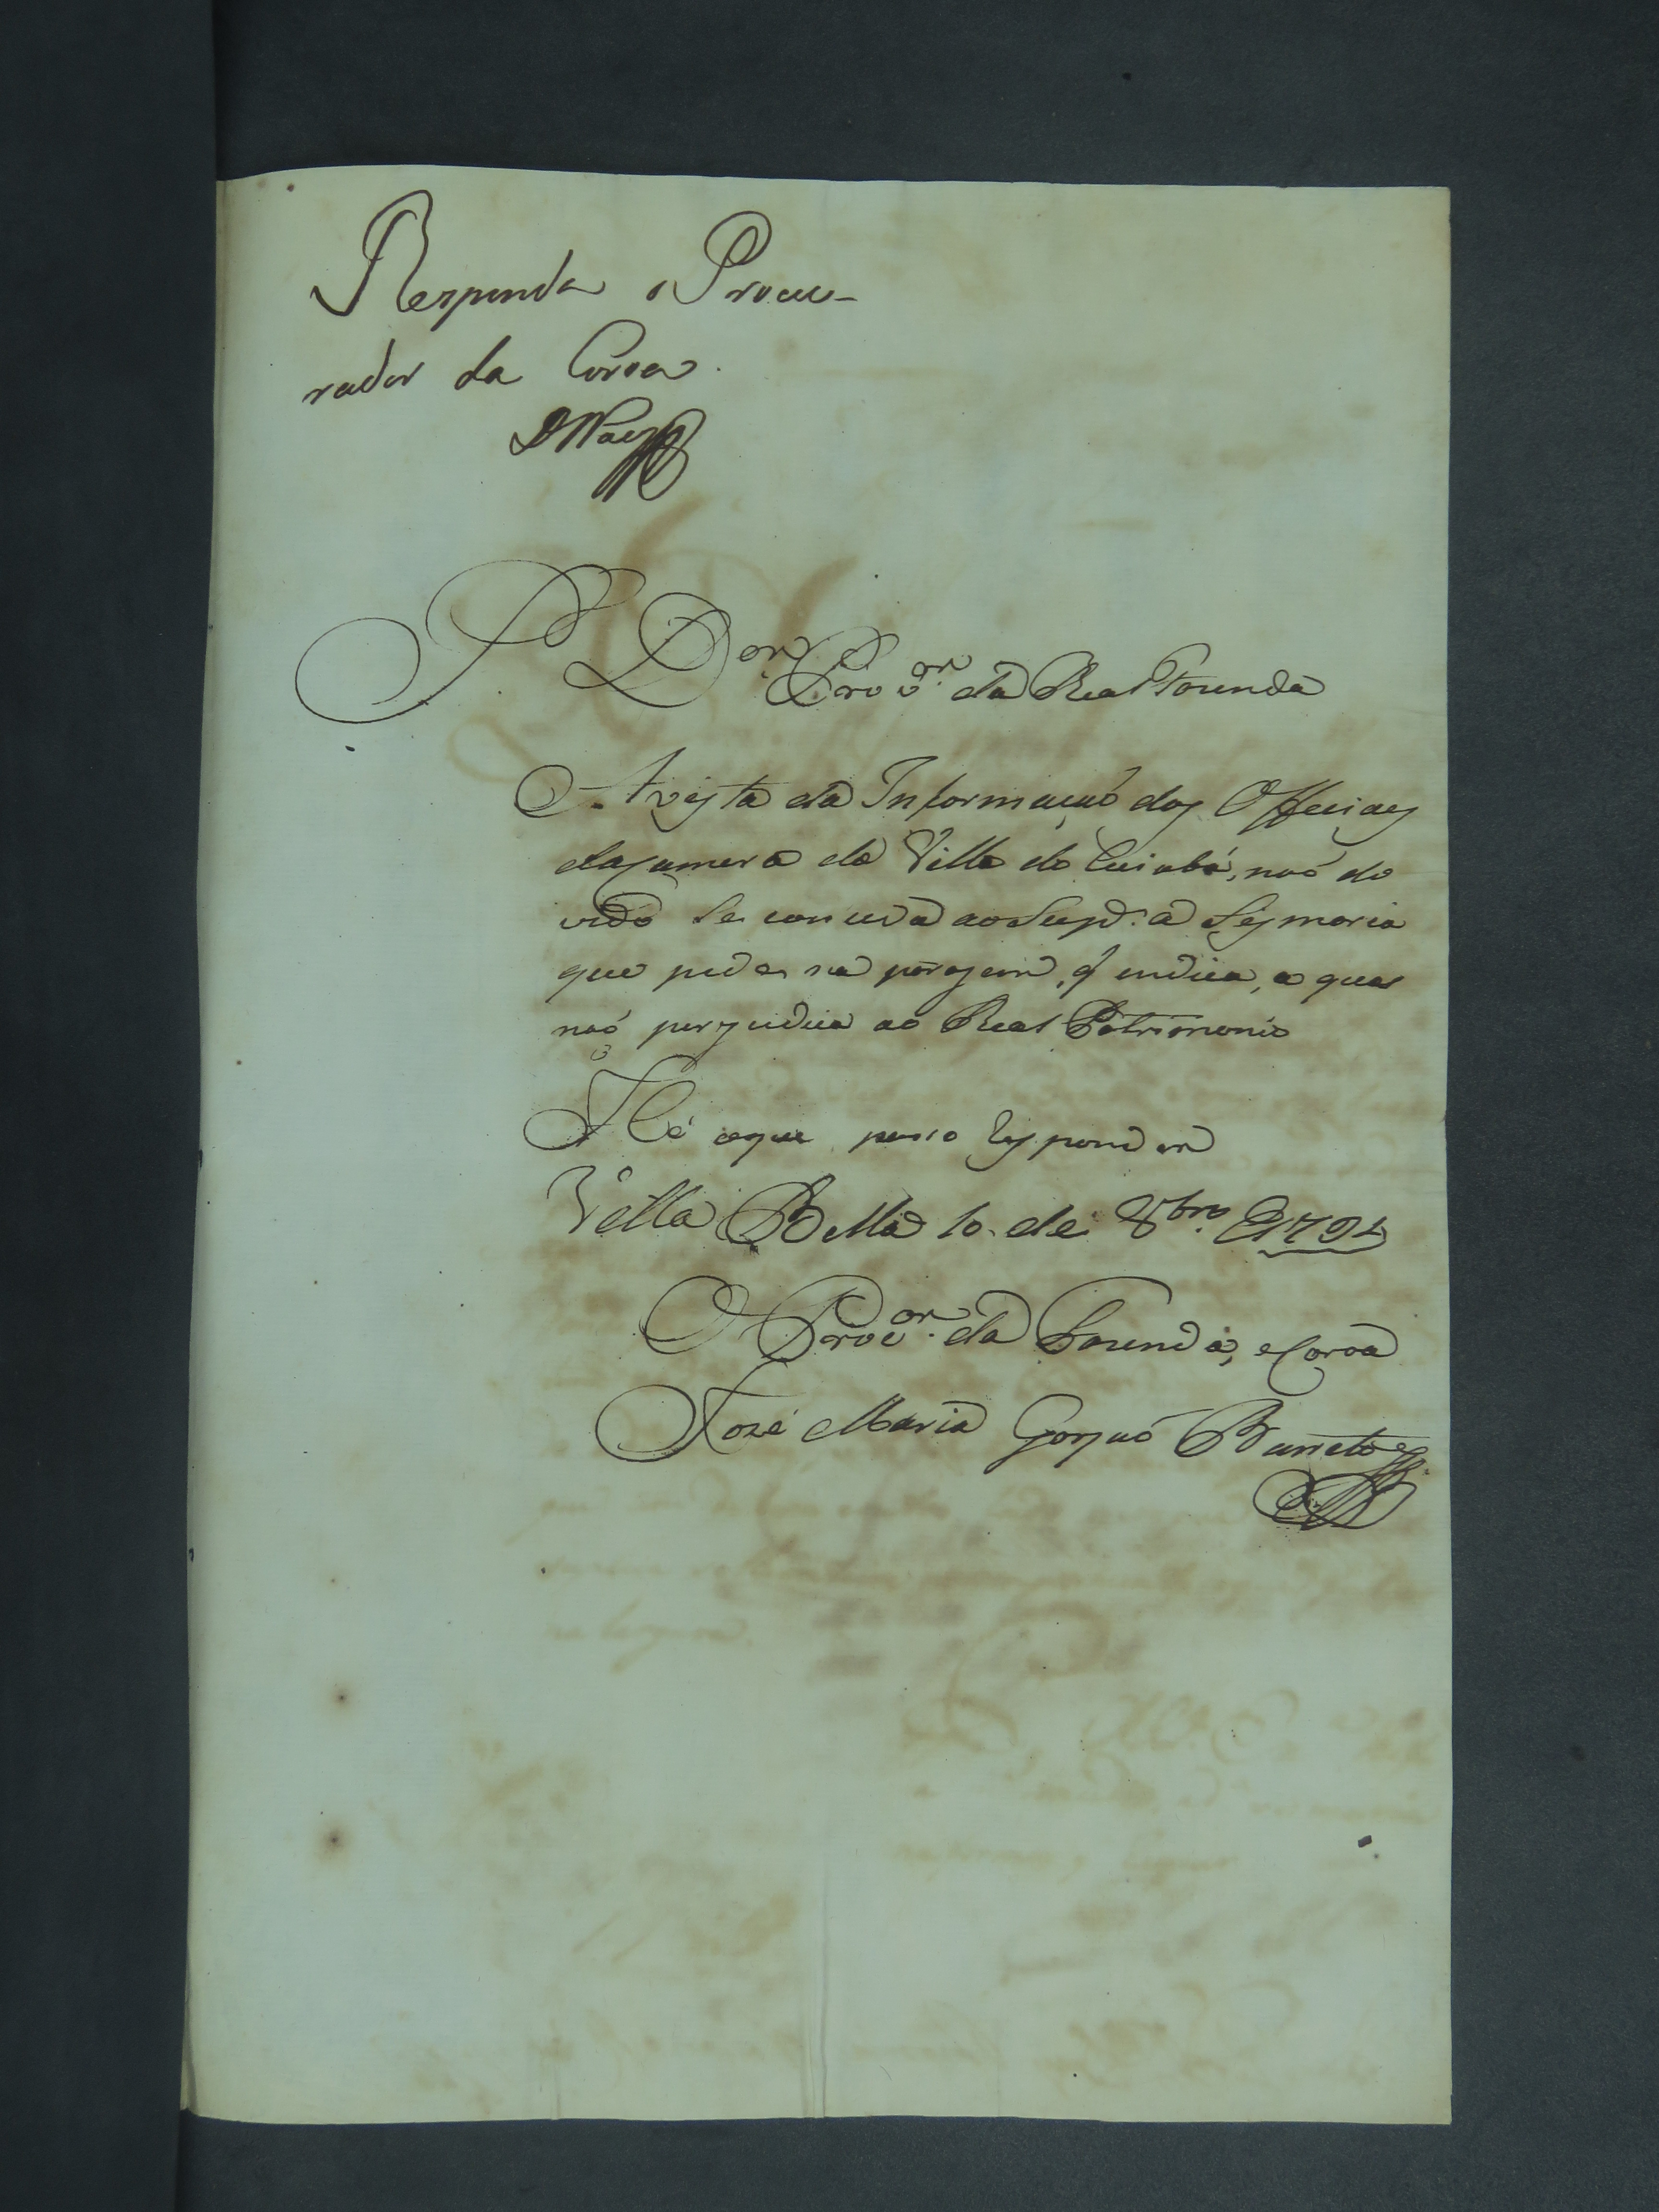 Responda o Procu-
rador da Coroa.
Sr. Dor. Provor. da Real Fazenda
A vista da Informaçaõ dos Officiaes
da Camera da Villa do Cuiabá, naõ du
vido se conceda ao Supe. a Sesmaria
que pede na paragem, q indica, a qual
naõ perjudica ao Real Patrimonio
He o que posso responder
Villa Bella 10 de 8bro. de 1794
O Procor. da Fazenda, e Coroa
José Maria Barreto